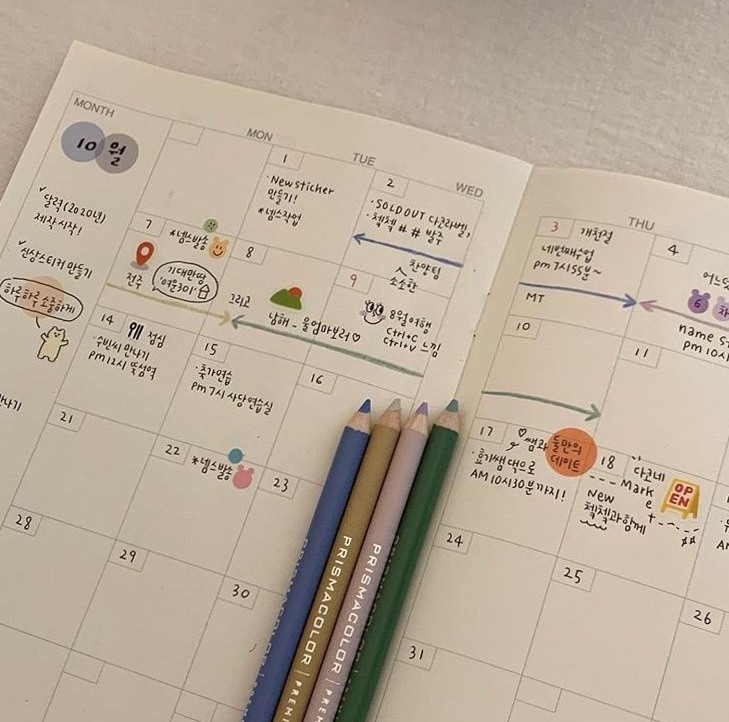 MONTH
MON
TUE
WED
THU
10월
✓달력(2020년)
제작시작!
✓신상스티커 만들기
하루하루 소중하게
1
·New sticker
만들기!
*넴스작업
2
·SOLD OUT 다코라벨,
·첵첵 ## 발주
찬양팀
소소한
3
개천절
네번째수업
pm 7시55분~
MT
4
name s
pm 10시
7
*넴스발송
전주
기대만땅
그리고
8
남해 - 울엄마보러♡
9
8월여행
Ctrl+C
Ctrl+V 느낌
10
11
14
점심
·수빈씨 만나기
pm 12시 뚝섬역
15
·축가연습
pm 7시 사당연습실
16
17
쌤과 둘만의
데이트
AM 10시30분까지!
18
다코네
Market
OPEN
New
첵첵과함께
21
22
*넴스발송
23
24
25
26
28
29
30
31
PRISMACOLOR | PREMI
PRISMACOLOR | PREM